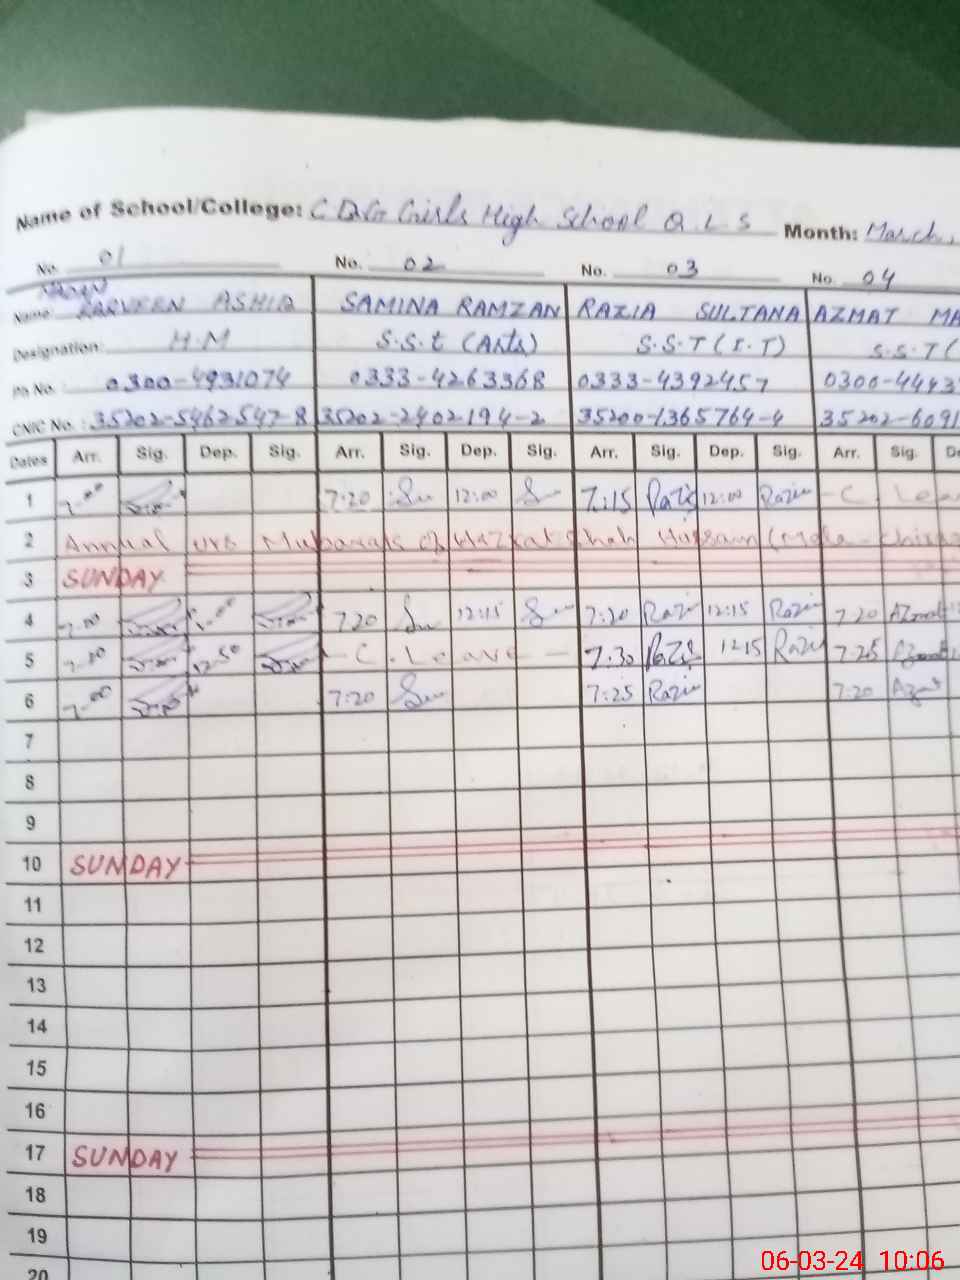 Name of School/College: C D.G Girls High School Q L S Month: March,
No. 01 No. 02 No. 03 No. 04
Name: PARVEEN ASHIQ SAMINA RAMZAN RAZIA SULTANA AZMAT MA
Designation: H.M S.S.t (Arts) S.S.T (I.T) S.S.T (
Ph No.: 0300-4931074 0333-4263368 0333-4392457 0300-4443
CNIC No.: 35202-5462547-8 35202-2402194-2 35200-1365764-4 35202-6091
Dates Arr. Sig. Dep. Sig. Arr. Sig. Dep. Sig. Arr. Sig. Dep. Sig. Arr. Sig. De
1 7-00 7:20 12:00 7:15 Razi 12:00 Razi - C. Lea
2 Annual urs Mubarak of Hazrat Shah Hussain (Mela - Chirag
3 SUNDAY
4 7-00 7:20 12:15 7:20 Razi 12:15 Razi 7:20 Azmat
5 7-00 12-50 - C. Leave - 7:30 Razi 12:15 Razi 7:25 Azmat
6 7-00 7:20 7:25 Razi 7:20 Azmat
7
8
9
10 SUNDAY
11
12
13
14
15
16
17 SUNDAY
18
19
20
06-03-24 10:06